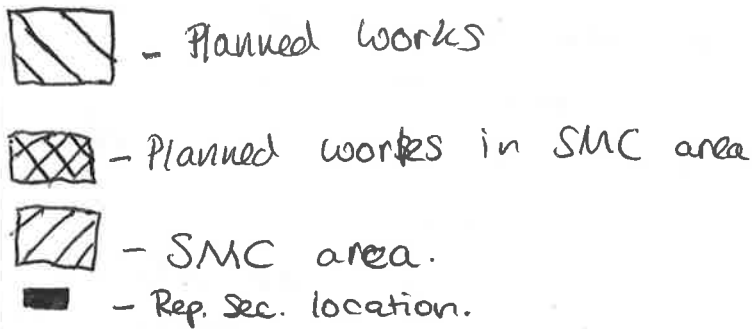 - Planned works
- Planned works in SMC area
- SMC area.
- Rep. Sec. location.